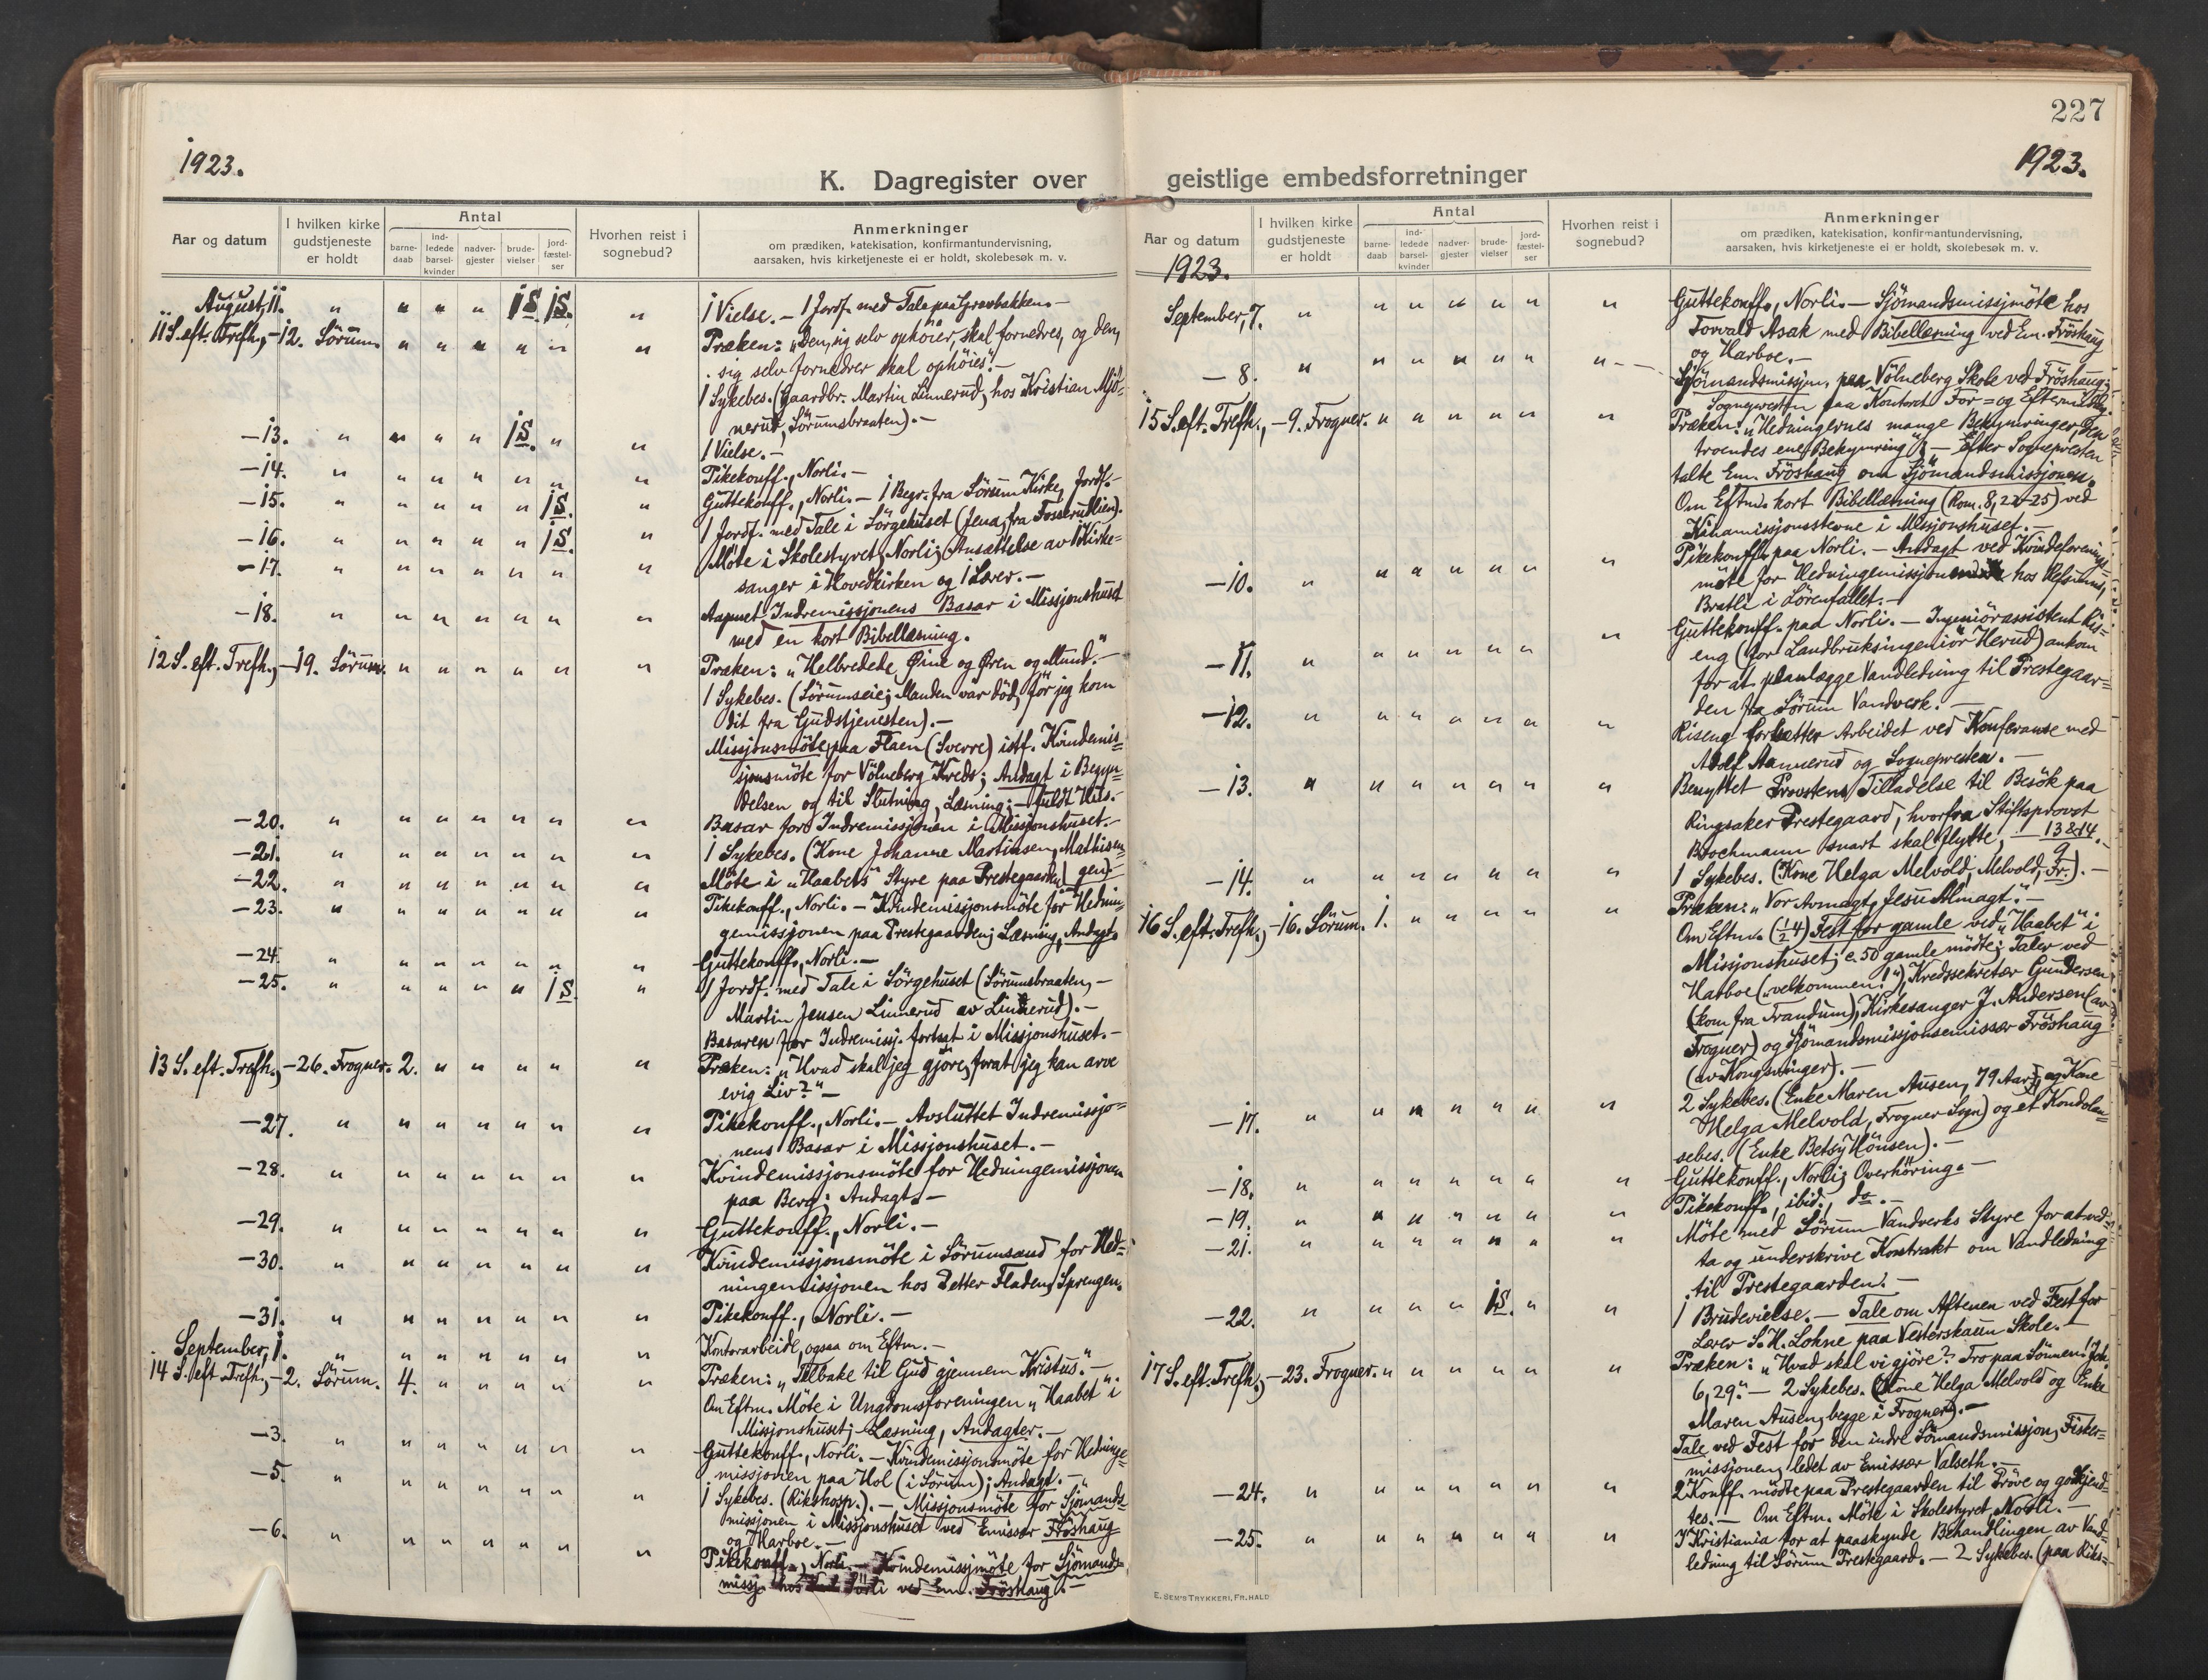 1923.
K. Dagregister over
Aar og datum
I hvilken kirke
gudstjeneste
er holdt
Antal
barne-
daab
ind-
ledede
barsel-
kvinder
nadver-
gjester
brude-
vielser
jord-
fæstel-
ser
Hvorhen reist i
sognebud?
Anmerkninger
om prædiken, katekisation, konfirmantundervisning,
aarsaken, hvis kirketjeneste ei er holdt, skolebesøk m. v.
August, 11. " " " " 1S. 1S. " 1 Vielse. - 1 Jordf. med Tale paa Gravbakken. -
11 S. eft. Trefh., -12. Sörum. " " " " " " Præken: "Den, sig selv ophöier, skal fornedres, og den,
sig selv fornedrer skal ophöies". -
1 Sykebes. (Gaardbr. Martin Linnerud, hos Kristian Mjö-
nerud, Sörumsbraaten). -
-13. " " " " 1S. " " 1 Vielse. -
-14. " " " " " " " Pikekonff., Norli. -
-15. " " " " " 1S. " Guttekonff., Norli. - 1 Begr. fra Sörum Kirke, Jordf. -
-16. " " " " " 1S. " 1 Jordf. med Tale i Sörgehuset (Jena, fra Fosserudlien).
-17. " " " " " " " Möte i Skolestyret, Norli; Ansættelse av 1 Kirke=
sanger i Hovedkirken og 1 Lærer. -
-18. " " " " " " " Aapnet Indremissjonens Basar i Missjonshuset
med en kort Bibellæsning.
12 S. eft. Trefh., -19. Sörum. " " " " " " Præken: "Helbredede Øine og Øren og Mund." -
1 Sykebes. (Sörumseie; Manden var död, för jeg kom
dit fra Gudstjenesten). -
Missjonsmöte paa Flaen (Sverre) istf. Kvindemis=
sjonsmöte for Völneberg Kreds; Andagt i Begyn=
delsen og til Slutning, Læsning; - fuldt Hus. -
-20. " " " " " " " Basar for Indremissjonen i Missjonshuset. -
-21. " " " " " " " 1 Sykebes. (Kone Johanne Martinsen, Mathisen=
-22. " " " " " " " Möte i "Haabets" Styre paa Prestegaarden | gen). -
-23. " " " " " " " Pikekonff., Norli. - Kvindemissjonsmöte for Hednin=
gemissjonen paa Prestegaarden; Læsning, Andagt.
-24. " " " " " " " Guttekonff., Norli. -
-25. " " " " " 1S. " 1 Jordf. med Tale i Sörgehuset (Sörumsbraaten, -
Martin Jensen Linnerud av Linnerud). -
Basaren for Indremissj. fortsat i Missjonshuset. -
13 S. eft. Trefh., -26. Frogner. 2. " " " " " Præken: "Hvad skal jeg gjöre, forat jeg kan arve
evig Liv?" -
-27. " " " " " " " Pikekonff., Norli. - Avsluttet Indremissjo=
nens Basar i Missjonshuset. -
-28. " " " " " " " Kvindemissjonsmöte for Hedningemissjonen
paa Berg; Andagt. -
-29. " " " " " " " Guttekonff., Norli. -
-30. " " " " " " " Kvindemissjonsmöte i Sörumsand for Hed=
ningemissjonen hos Petter Fladen, Sprengen.
-31. " " " " " " " Pikekonff., Norli. -
September, 1. " " " " " " " Kontorarbeide, ogsaa om Eftm. -
14 S. eft. Trefh., -2. Sörum. 4. " " " " " Præken: "Tilbake til Gud gjennem Kristus". -
Om Eftm. Möte i Ungdomsforeningen "Haabet" i
Missjonshuset; - Læsning, Andagter. -
-3. " " " " " " " Guttekonff., Norli. - Kvindemissjonsmöte for Hedninge=
missjonen paa Hol (i Sörum); Andagt. -
-5. " " " " " " " 1 Sykebes. (Rikshosp.). - Missjonsmöte for Sjömands=
missjonen i Missjonshuset ved Emissær Fröshaug
og Harboe. -
-6. " " " " " " " Pikekonff., Norli. - Kvindemissjmöte for Sjömands=
missj. hos Norli ved Em. Fröshaug. -
227
1923.
geistlige embedsforretninger
Aar og datum
I hvilken kirke
gudstjeneste
er holdt
Antal
barne-
daab
ind-
ledede
barsel-
kvinder
nadver-
gjester
brude-
vielser
jord-
fæstel-
ser
Hvorhen reist i
sognebud?
Anmerkninger
om prædiken, katekisation, konfirmantundervisning,
aarsaken, hvis kirketjeneste ei er holdt, skolebesøk m. v.
1923.
September, 7. " " " " " " " Guttekonff., Norli. - Sjömandsmissjmöte hos
Torvald Asak med Bibellæsning ved Em. Fröshaug
og Harboe. -
-8. " " " " " " " Sjömandsmissjon, paa Völneberg Skole ved Fröshaug;
Sognepresten paa Kontoret For= og Eftermiddag.
15 S. eft. Trefh., -9. Frogner. " " " " " " Præken: "Hedningernes mange Bekymringer, Den
troendes ene Bekymring". - Efter Sognepresten
talte Em. Fröshaug om Sjömandsmissjonen.
Om Eftm. kort Bibellæsning (Rom. 8, 22-25) ved
Kinamissjonsstevne i Missjonshuset. -
-10. " " " " " " " Pikekonff. paa Norli. - Andagt ved Kvindeforenings=
möte for Hedningemissjonen hos
Bratli i Lörenfallet. -
-11. " " " " " " " Guttekonff. paa Norli. - Ingeniörassistent Ris=
eng (for Landbruksingeniör Herud) ankom
for at planlægge Vandledning til Prestegaar=
den fra Sörum Vandverk. -
-12. " " " " " " " Riseng fortsætter Arbeidet ved Konferanse med
Adolf Aannerud og Sognepresten. -
-13. " " " " " " " Benyttet Provstens Tilladelse til Besök paa
Ringsaker Prestegaard, hvorfra Stiftsprovst
Brochmann snart skal flytte, - 13 & 14/9.
-14. " " " " " " " 1 Sykebes. (Kone Helga Melvold, Melvold, Fr.). -
16 S. eft. Trefh., -16. Sörum. 1. " " " " " Præken: "Vor Avmagt, Jesu Almagt". -
Om Eftm. (½4) Fest for gamle ved "Haabet" i
Missjonshuset; c. 50 gamle mödte; Taler ved
Harboe ("velkommen!"), Kredssekretær Gundersen
(kom fra Trandum), Kirkesanger J. Andersen (av
Frogner) og Sjömandsmissjonsemissær Fröshaug
(av Kongsvinger). -
-17. " " " " " " " 2 Sykebes. (Enke Maren Ausen, 79 Aar, og Kone
Helga Melvold, Frogner Sogn) og et Kondolan=
sebes. (Enke Betsy Hönsen). -
-18. " " " " " " " Guttekonff., Norli; Overhöring. -
-19. " " " " " " " Pikekonff., ibid., do. -
-21. " " " " " " " Möte med Sörum Vandverks Styre for at ved=
ta og underskrive Kontrakt om Vandledning
til Prestegaarden. -
-22. " " " " 1S. " " 1 Brudevielse. - Tale om Aftenen ved Fest for
Lærer S. H. Lohne paa Vesterskaun Skole. -
17 S. eft. Trefh., -23. Frogner. " " " " " " Præken: "Hvad skal vi gjöre? Tro paa Sönnen! Joh.
6,29." - 2 Sykebes. (Kone Helga Melvold og Enke
Maren Ausen, begge i Frogner). -
Tale ved Fest for den indre Sömandsmissjon, Fisker=
missjonen, ledet av Emissær Valseth. -
-24. " " " " " " " 2 Konff. mödte paa Prestegaarden til Pröve og godkjend=
tes. - Om Eftm. Möte i Skolestyret, Norli. -
-25. " " " " " " " I Kristiania for at paaskynde Behandlingen av Vand=
ledning til Sörum Prestegaard. - 2 Sykebes. (paa Riks=
E. SEM'S TRYKKERI, FR.HALD